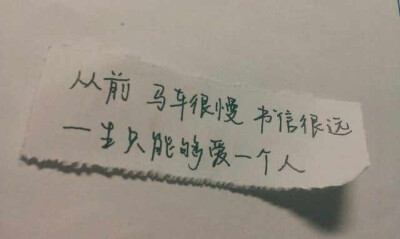 从前 马车很慢 书信很远
一生只能够爱一个人